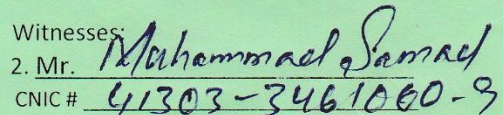 Witnesses:
2. Mr. Muhammad Samad
CNIC # 41303-3461060-9